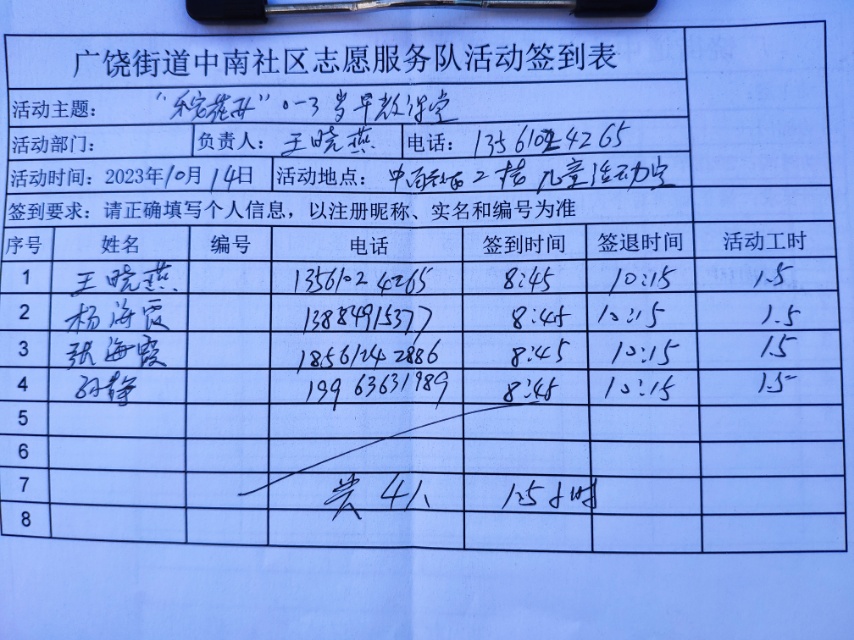 广饶街道中南社区志愿服务队活动签到表
活动主题： "稻花开" 0-3岁早教课堂
活动部门： 负责人：王晓燕 电话：13561024265
活动时间：2023年10月14日 活动地点：中南社区2楼儿童活动室
签到要求：请正确填写个人信息，以注册昵称、实名和编号为准
序号 姓名 编号 电话 签到时间 签退时间 活动工时
1 王晓燕 13561024265 8:45 10:15 1.5
2 杨海霞 13884915377 8:45 10:15 1.5
3 张海霞 18561242886 8:45 10:15 1.5
4 孙静 19963631989 8:45 10:15 1.5
5
6
7 共4人 1.5小时
8